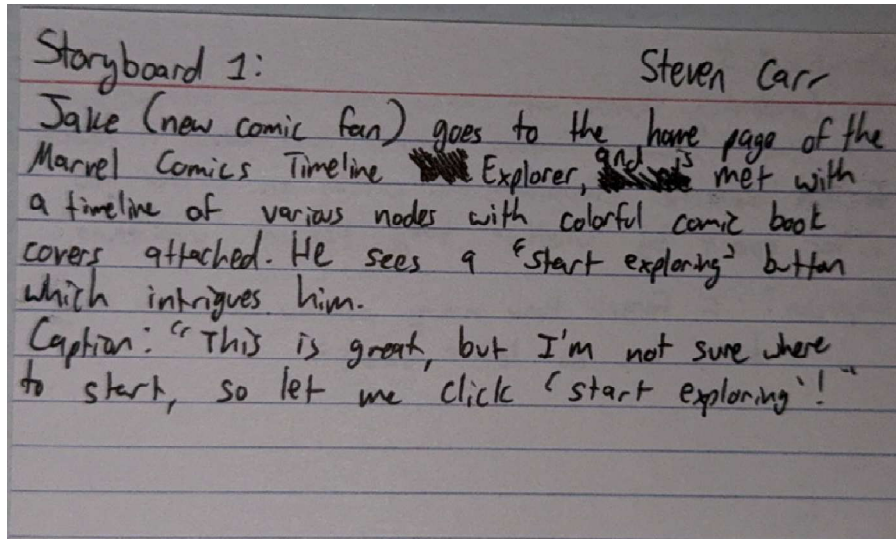 Storyboard 1: Steven Carr
Jake (new comic fan) goes to the home page of the
Marvel Comics Timeline Explorer, and is met with
a timeline of various nodes with colorful comic book
covers attached. He sees a 'start exploring' button
which intrigues him.
Caption: "This is great, but I'm not sure where
to start, so let me click 'start exploring'!"